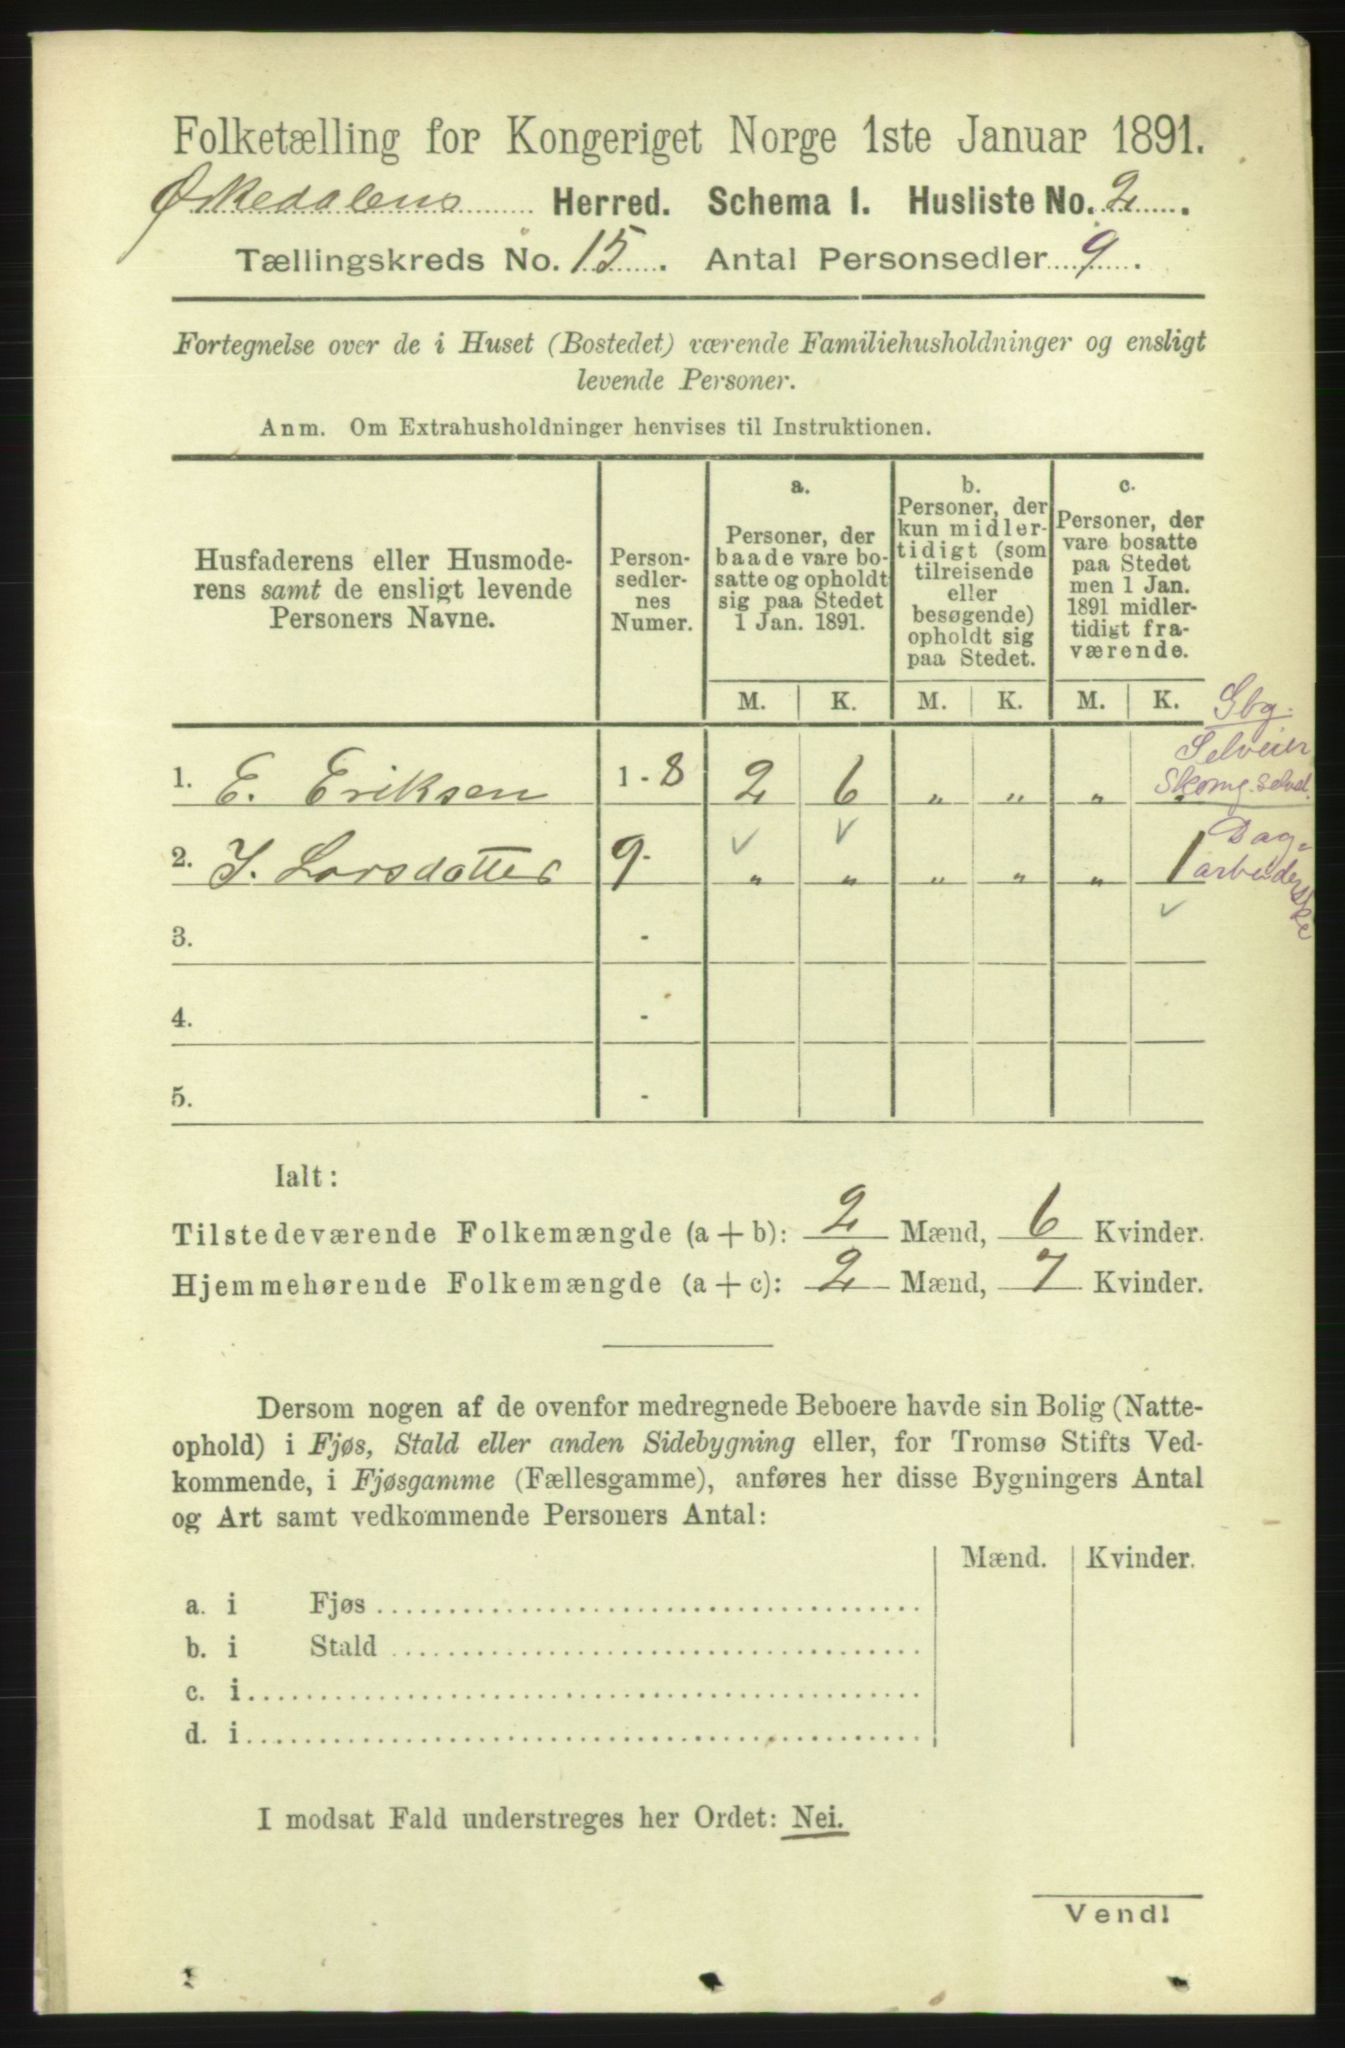 Folketælling for Kongeriget Norge 1ste Januar 1891.
Ørkedalens Herred. Schema I. Husliste No. 2.
Tællingskreds No. 15. Antal Personsedler 9.
Fortegnelse over de i Huset (Bostedet) værende Familiehusholdninger og ensligt
levende Personer.
Anm. Om Extrahusholdninger henvises til Instruktionen.
Husfaderens eller Husmode-
rens samt de ensligt levende
Personers Navne.
Person-
sedler-
nes
Numer.
a.
Personer, der
baade vare bo-
satte og opholdt
sig paa Stedet
1 Jan. 1891.
b.
Personer, der
kun midler-
tidigt (som
tilreisende
eller
besøgende)
opholdt sig
paa Stedet.
c.
Personer, der
vare bosatte
paa Stedet
men 1 Jan.
1891 midler-
tidigt fra-
værende.
M. K. M. K. M. K.
Gbg.
Selveier
Skomg. selvst.
1. E. Eriksen 1 - 8 2 6 „ „ „ „
Dag-
arbeiderske
2. I. Larsdatter 9 - „ „ „ „ „ 1
3. -
4. -
5. -
Ialt:
Tilstedeværende Folkemængde (a + b): 2 Mænd, 6 Kvinder.
Hjemmehørende Folkemængde (a + c): 2 Mænd, 7 Kvinder.
Dersom nogen af de ovenfor medregnede Beboere havde sin Bolig (Natte-
ophold) i Fjøs, Stald eller anden Sidebygning eller, for Tromsø Stifts Ved-
kommende, i Fjøsgamme (Fællesgamme), anføres her disse Bygningers Antal
og Art samt vedkommende Personers Antal:
Mænd. Kvinder.
a. i Fjøs
b. i Stald
c. i
d. i
I modsat Fald understreges her Ordet: Nei.
Vend!